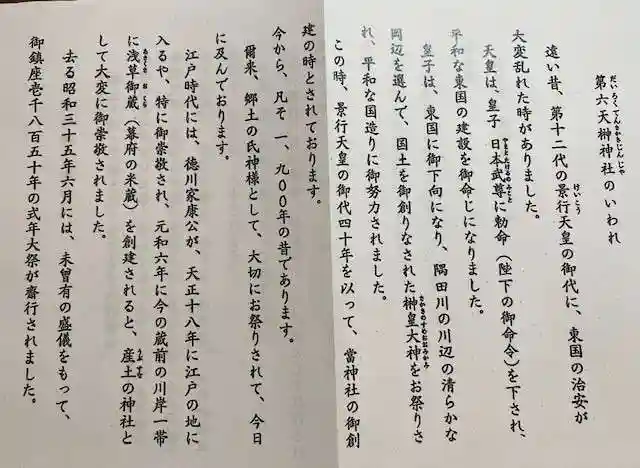 第六天榊神社のいわれ
遠い昔、第十二代の景行天皇の御代に、東国の治安が
大変乱れた時がありました。
天皇は、皇子 日本武尊に勅命（陛下の御命令）を下され、
平和な東国の建設を御命じになりました。
皇子は、東国に御下向になり、隅田川の川辺の清らかな
岡辺を選んで、国土を御創りなされた榊皇大神をお祭りさ
れ、平和な国造りに御努力されました。
この時、景行天皇の御代四十年を以って、當神社の御創
建の時とされております。
今から、凡そ一、九〇〇年の昔であります。
爾来、郷土の氏神様として、大切にお祭りされて、今日
に及んでおります。
江戸時代には、徳川家康公が、天正十八年に江戸の地に
入るや、特に御崇敬され、元和六年に今の蔵前の川岸一帯
に浅草御蔵（幕府の米蔵）を創建されると、産土の神社と
して大変に御崇敬されました。
去る昭和三十五年六月には、未曾有の盛儀をもって、
御鎮座壱千八百五十年の式年大祭が齋行されました。